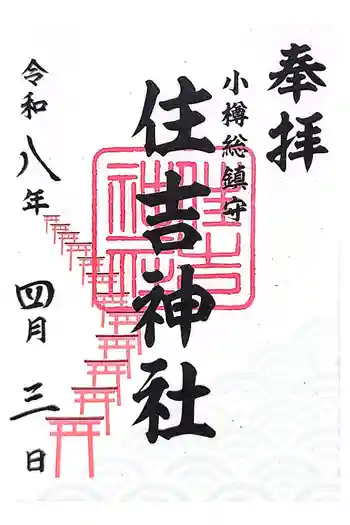 奉拝
小樽総鎮守
住吉神社
令和八年
四月三日
住吉神社